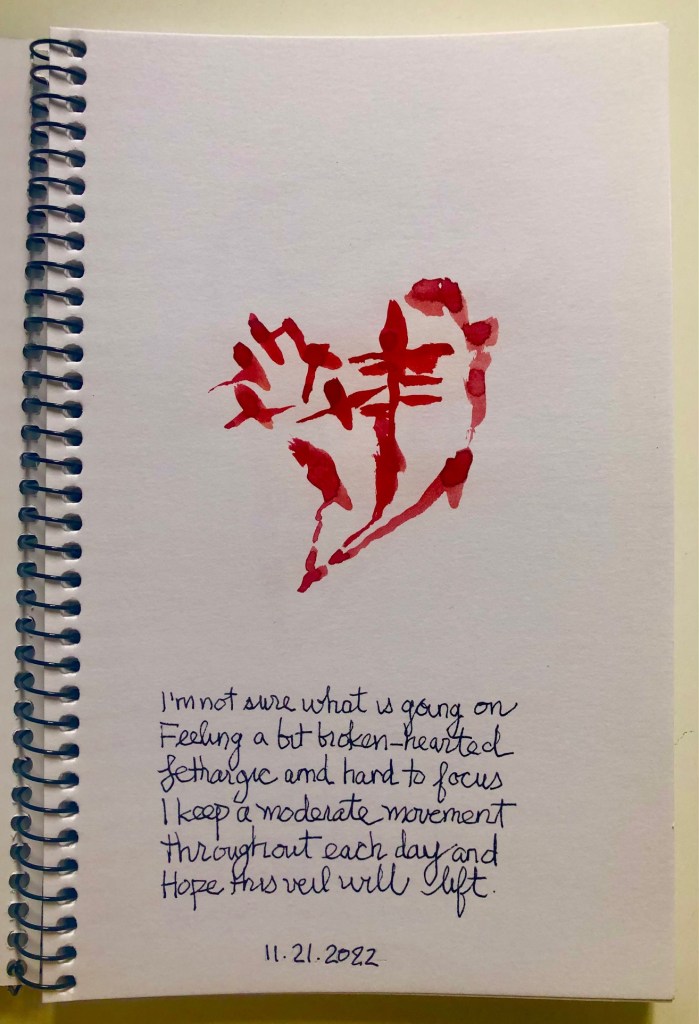 I'm not sure what is going on
Feeling a bit broken-hearted
Lethargic and hard to focus
I keep a moderate movement
throughout each day and
Hope this veil will lift.
11.21.2022